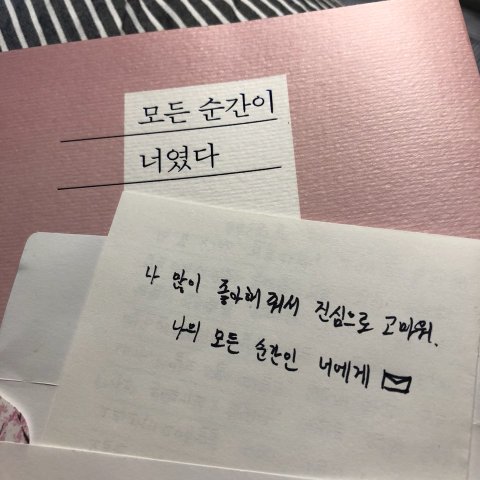 모든 순간이
너였다
나 많이 좋아해 줘서 진심으로 고마워.
나의 모든 순간인 너에게